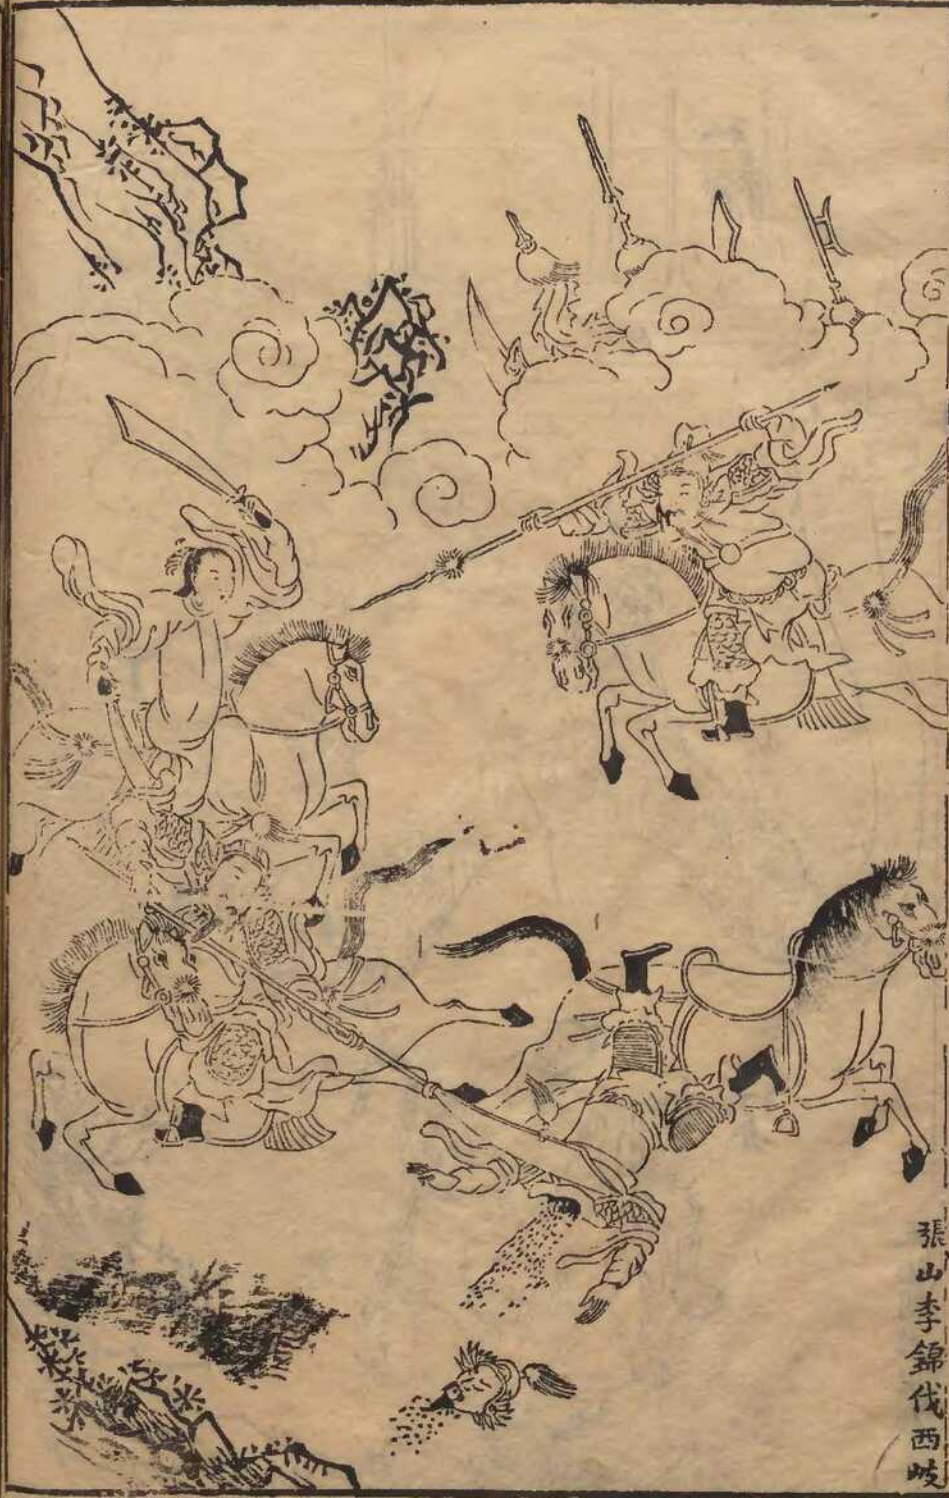 張山李錦伐西岐